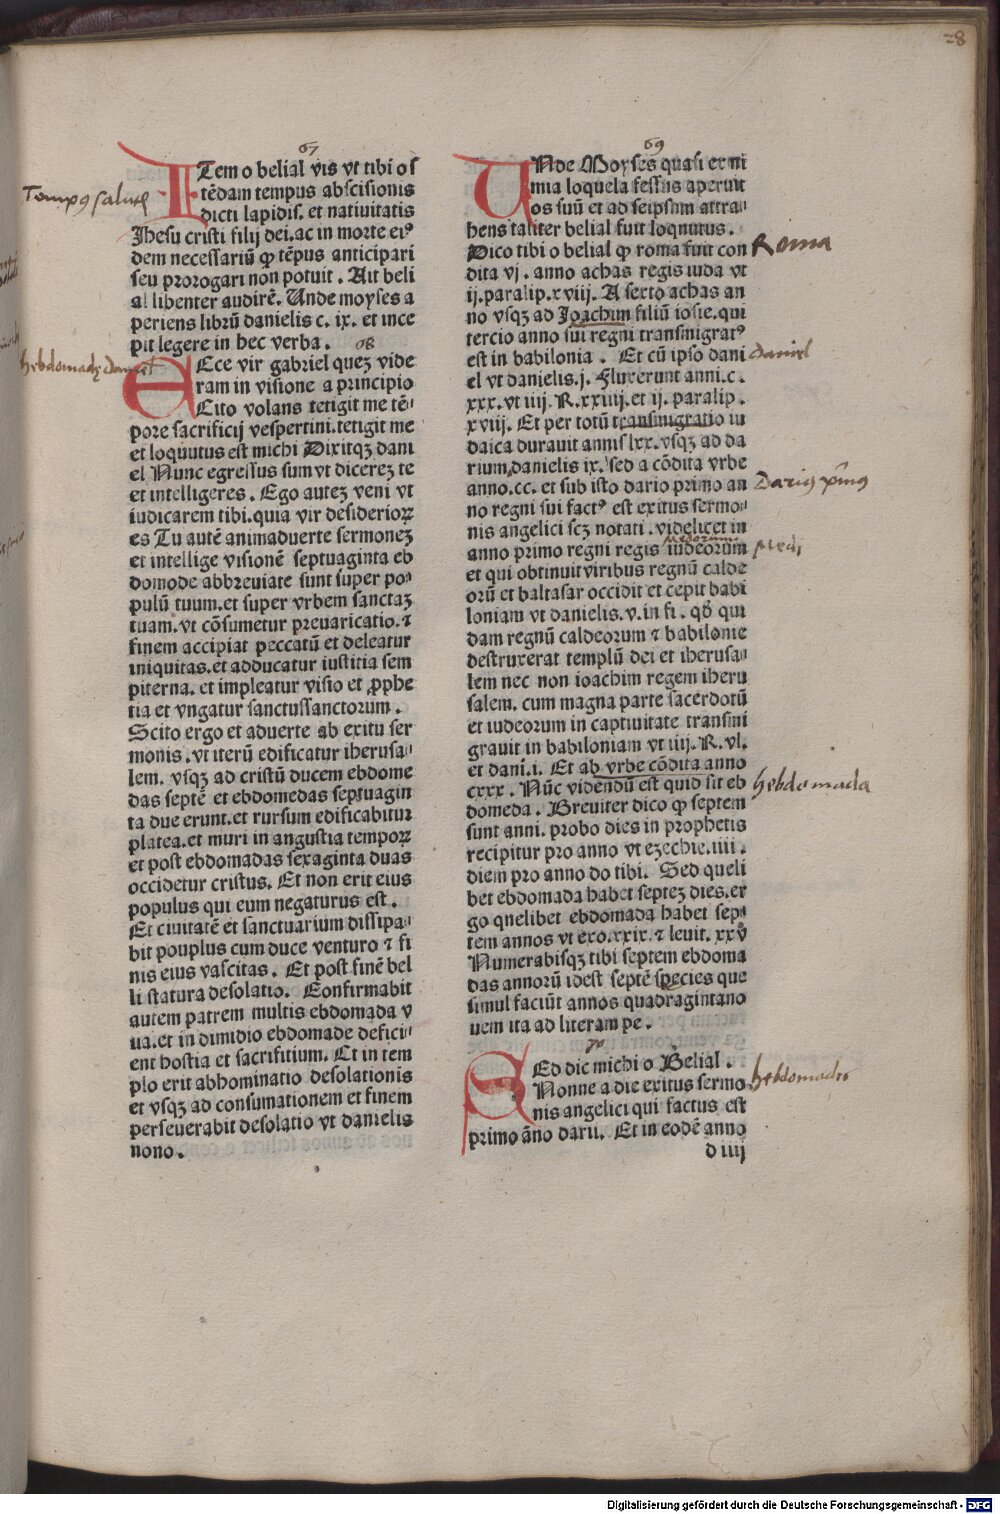 28
67
ITem o belial vis vt tibi os
tēdam tempus abscisionis
dicti lapidis. et natiuitatis
Jhesu cristi filij dei. ac in morte eiꝰ
dem necessariū ꝙ tēpus anticipari
seu prorogari non potuit. Ait beli
al libenter audirē. Unde moyses a
periens librū danielis c. ix. et ince
pit legere in hec verba.
68
ECce vir gabriel quez vide
ram in visione a principio
Cito volans tetigit me tē⸗
pore sacrificij vespertini. tetigit me
et loqnutus est michi Dixitqꝫ dani
el Nunc egressus sum vt dicerez te
et intelligeres. Ego autez veni vt
iudicarem tibi. quia vir desiderioꝝ
es Tu autē animaduerte sermonez
et intellige visionē septuaginta eb
domode abbreuiate sunt super po⸗
pulū tuum. et super vrbem sanctaz
tuam. vt cōsumetur preuaricatio. ⁊
finem accipiat peccatū et deleatur
iniquitas. et adducatur iustitia sem
piterna. et impleatur visio et ꝓphe
tia et vngatur sanctussanctorum.
Scito ergo et aduerte ab exitu ser
monis. vt iterū edificatur iherusa⸗
lem. vsqꝫ ad cristū ducem ebdome
das septē et ebdomedas septuagin
ta due erunt. et rursum edificabitur
platea. et muri in angustia tempoꝝ
et post ebdomadas sexaginta duas
occidetur cristus. Et non erit eius
populus qui eum negaturus est.
Et ciuitatē et sanctuarium dissipa⸗
bit pouplus cum duce venturo ⁊ fi
nis eius vascitas. Et post finē bel
li statura desolatio. Confirmabit
autem patrem multis ebdomada v
na. et in dimidio ebdomade defici⸗
ent hostia et sacrifitium. Et in tem
plo erit abhominatio desolationis
et vsqꝫ ad consumationem et finem
perseuerabit desolatio vt danielis
nono.
69
UNde Moyses quasi ex ni
mia loquela fessus aperuit
os suū et ad seipsum attra⸗
hens taliter belial fuit loqnutus.
Dico tibi o belial ꝙ roma fuit con
dita vj. anno achas regis iuda vt
ij. paralip. xviij. A sexto achas an
no vsqꝫ ad Joachim filiū iosie. qui
tercio anno sui regni transmigratꝰ
est in babilonia. Et cū ipso dani
el vt danielis. j. Fluxerunt anni. c.
xxx. vt iiij. R. xxiiij. et ij. paralip.
xviij. Et per totū transmigratio iu
daica durauit annis lxx. vsqꝫ ad da
rium danielis ix. sed a cōdita vrbe
anno. cc. et sub isto dario primo an
no regni sui factꝰ est exitus sermo⸗
nis angelici scꝫ notati. videlicet in
medorum
anno primo regni regis iudeorum
et qui obtinuit viribus regnū calde
orū et baltasar occidit et cepit babi
loniam vt danielis. v. in fi. qð qui
dam regnū caldeorum ⁊ babilonie
destruxerat templū dei et iherusa⸗
lem nec non ioachim regem iheru
salem. cum magna parte sacerdotū
et iudeorum in captiuitate transmi
grauit in babiloniam vt iiij. R. vl.
et dani. i. Et ab vrbe cōdita anno
cxxx. Nūc videndū est quid sit eb
domeda. Breuiter dico ꝙ septem
sunt anni. probo dies in prophetis
recipitur pro anno vt ezechie. iiii.
diem pro anno do tibi. Sed queli
bet ebdomada habet septez dies. er
go qnelibet ebdomada habet sep⸗
tem annos vt exo. xxix. ⁊ leuit. xxv
Numerabisqꝫ tibi septem ebdoma
das annorū idest septē species que
simul faciūt annos quadragintano
uem ita ad literam pe.
70
SEd dic michi o Belial.
Nonne a die exitus sermo
nis angelici qui factus est
primo āno darii. Et in eodē anno
d iiij
Tempꝰ salutꝭ
hebdomadę Daniel
Roma
Daniel
Dariꝰ pīmꝰ
Medi
hebdomada
hebdomades
Digitalisierung gefördert durch die Deutsche Forschungsgemeinschaft - DFG